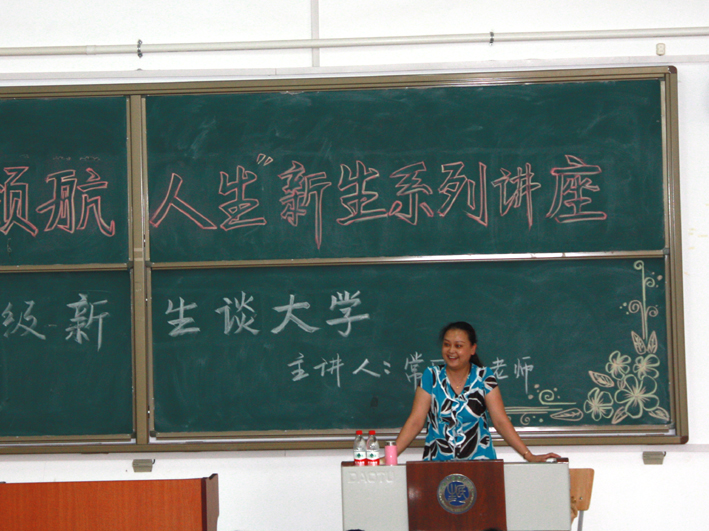 领航人生”新生系列讲座
级-新生谈大学
主讲人:常 老师